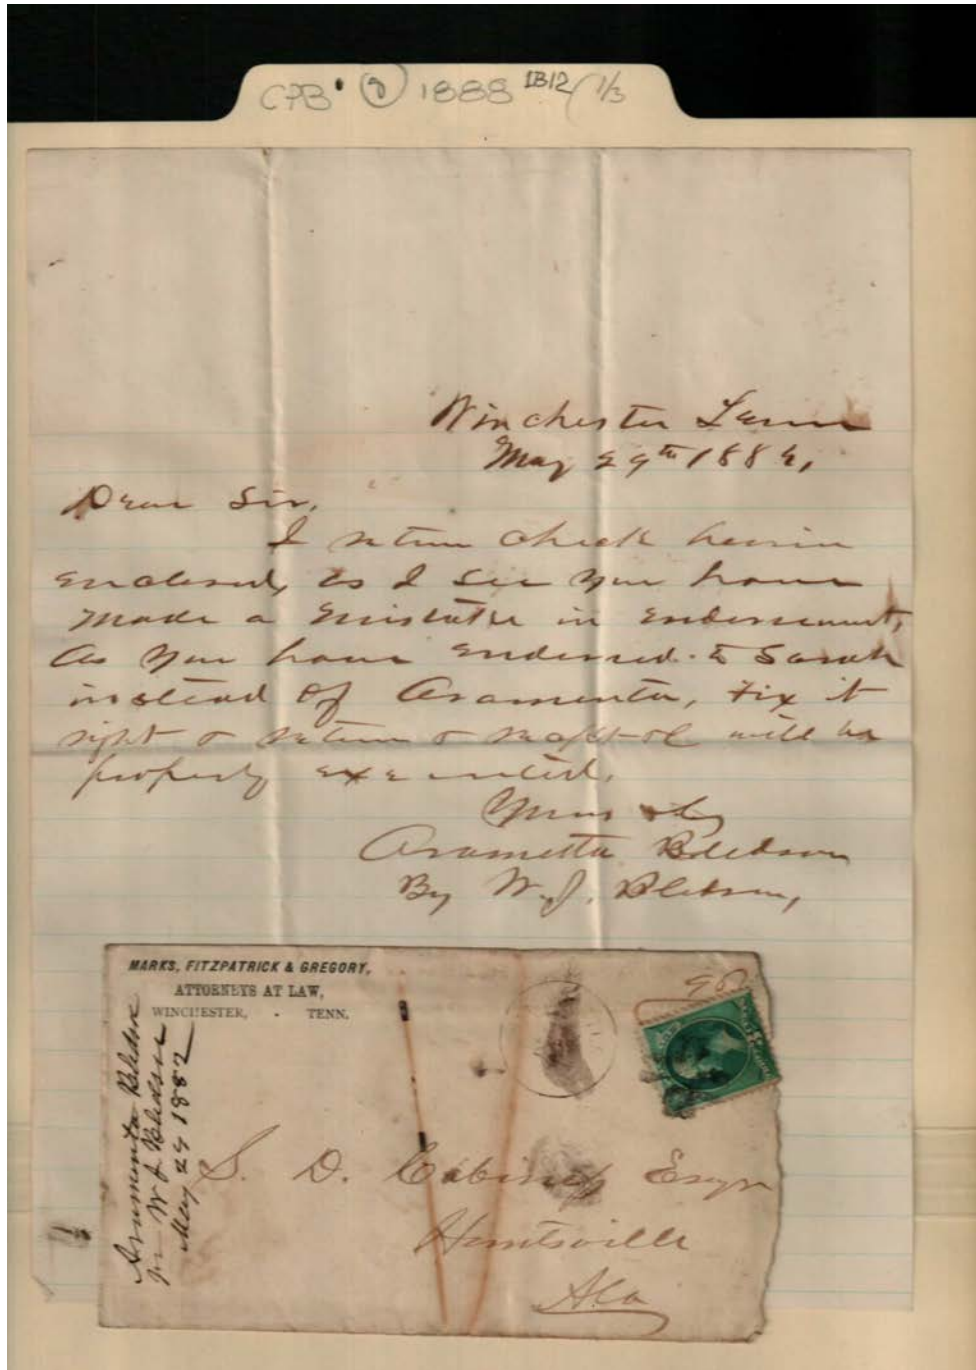 CPB 8 1888 IB12 1/3
Winchester Tenn
May 29th 188
Dear Sir,
I return check herein
enclosed, as I see you have
made a mistake in endorsement,
as you have endorsed to Sarah
instead of Aramenta, Fix it
right & return & will be
properly executed.
Yours &c
Arametta Bledsoe
By W. J. Bledsoe,
MARKS, FITZPATRICK & GREGORY,
ATTORNEYS AT LAW,
WINCHESTER, - TENN.
Aramenta Bledsoe
pr W J Bledsoe
May 29 1882
S. D. Cabiness Esqr
Huntsville
Ala